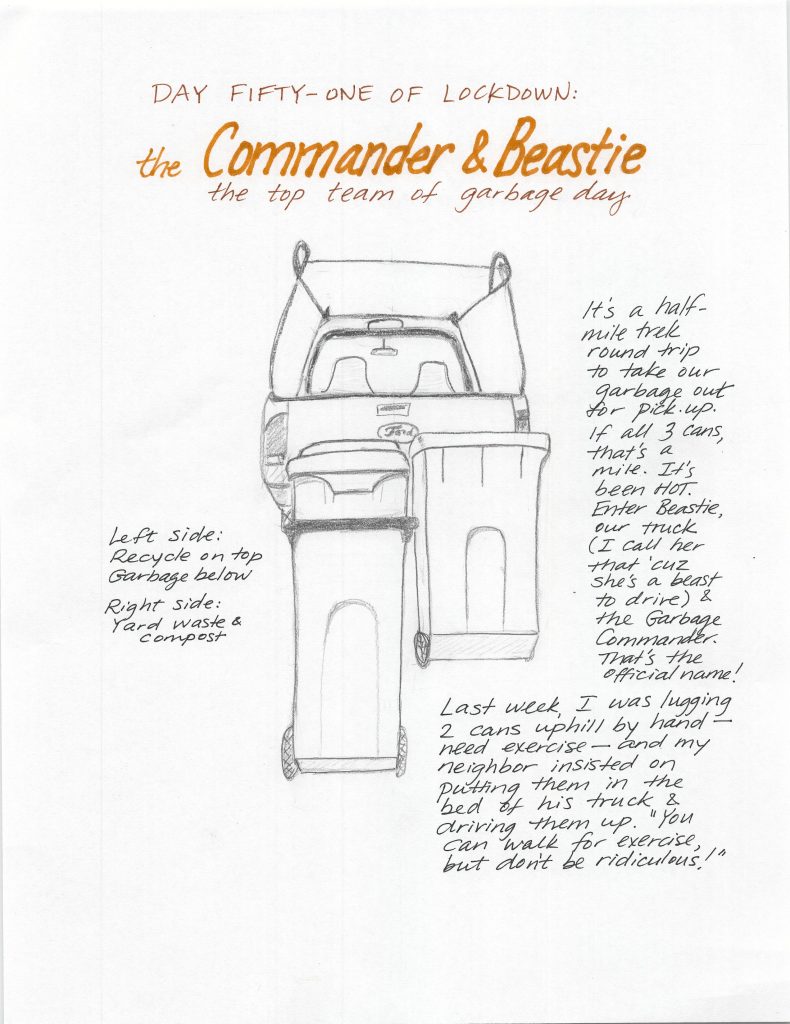 DAY FIFTY-ONE OF LOCKDOWN:
the Commander & Beastie
the top team of garbage day
Ford
It's a half-
mile trek
round trip
to take our
garbage out
for pick-up.
If all 3 cans,
that's a
mile. It's
been HOT.
Enter Beastie,
our truck
(I call her
that 'cuz
she's a beast
to drive) &
the Garbage
Commander.
That's the
official name!
Left side:
Recycle on top
Garbage below
Right side:
Yard waste &
compost
Last week, I was lugging
2 cans uphill by hand—
need exercise — and my
neighbor insisted on
putting them in the
bed of his truck &
driving them up. "You
can walk for exercise,
but don't be ridiculous!"